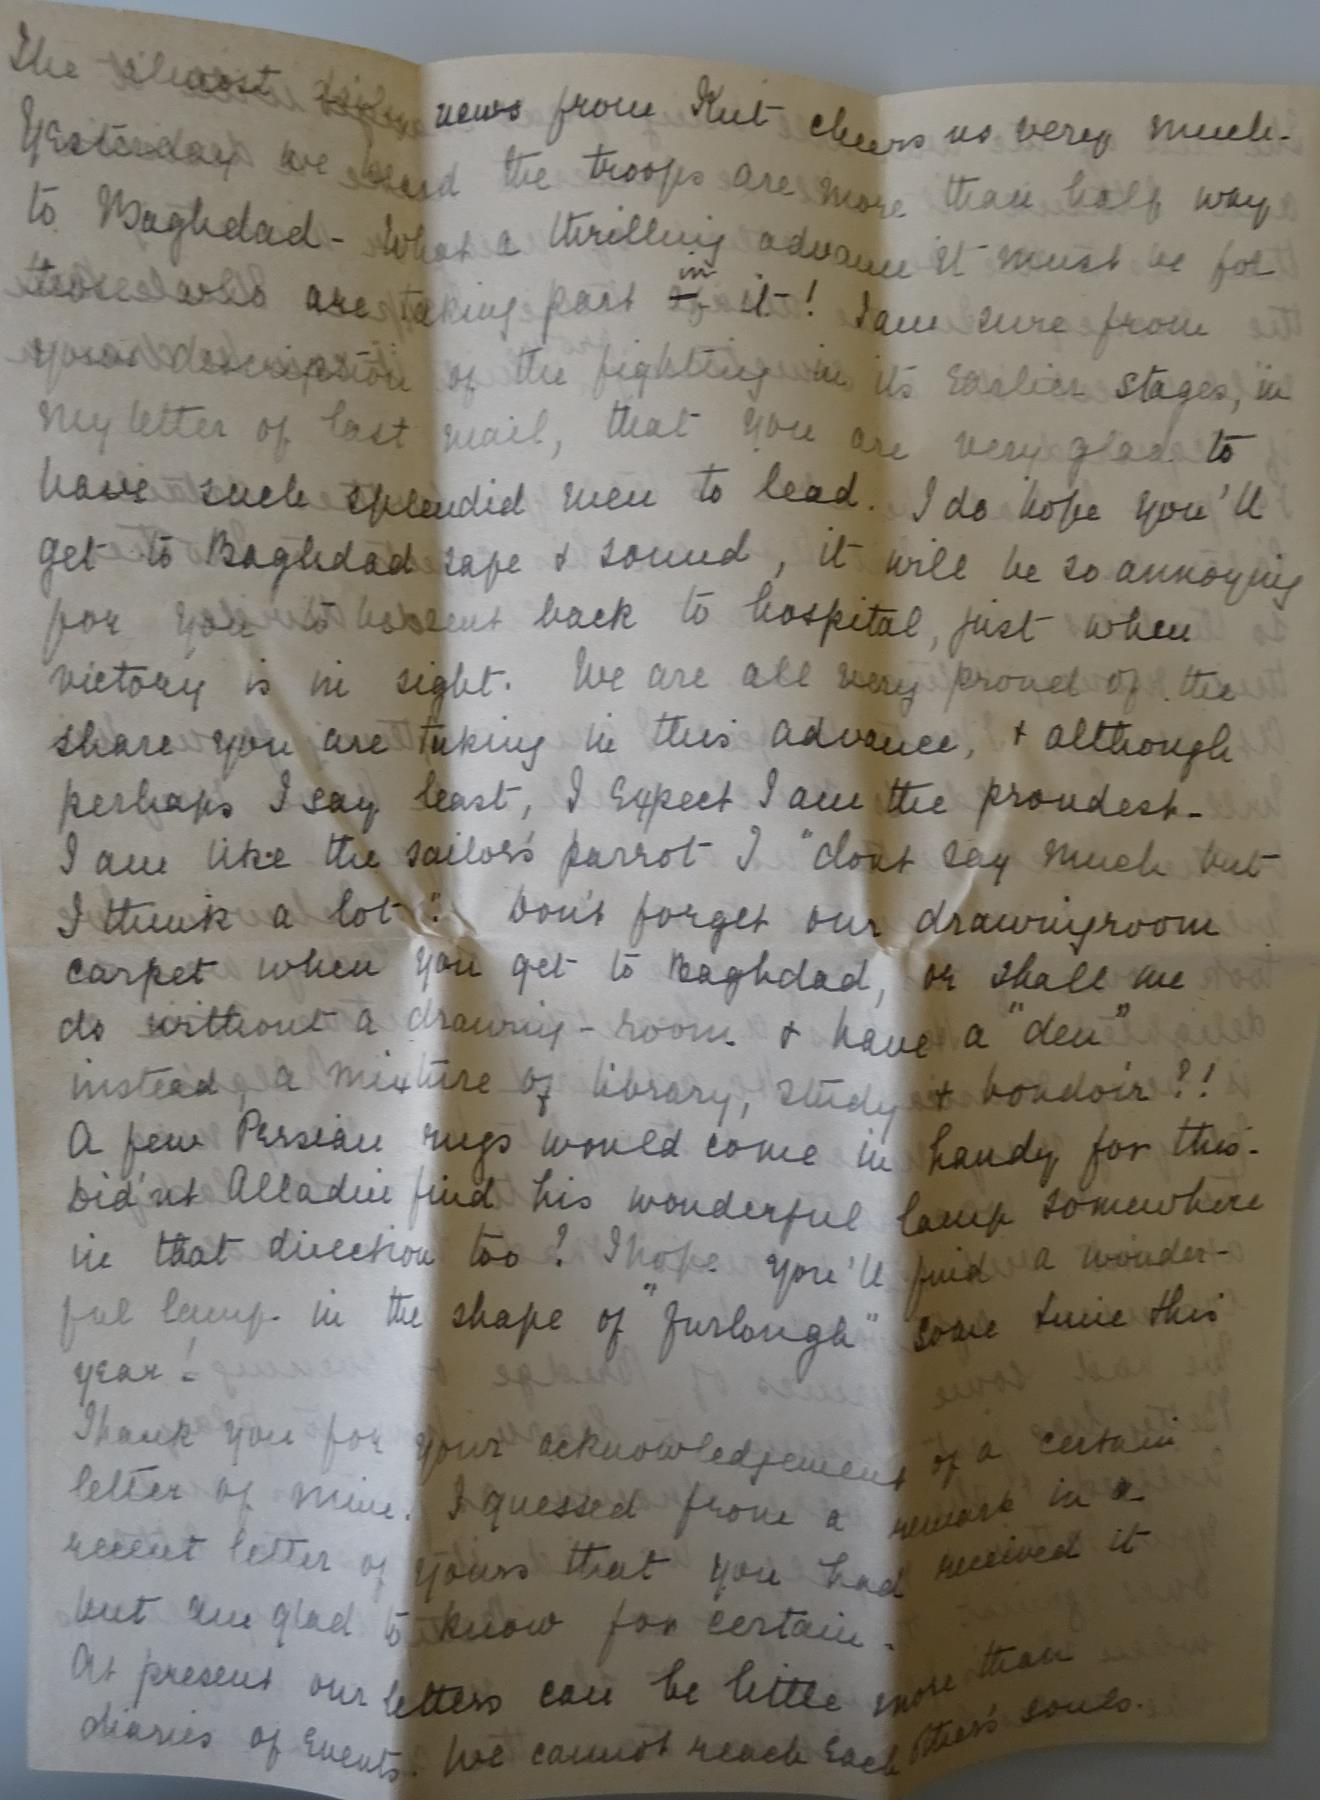 The almost daily news from Kut cheers us very much.
Yesterday we heard the troops are more than half way
to Baghdad - What a thrilling advance it must be for
those who are taking part in it! I am sure from
your description of the fighting in its earlier stages, in
my letter of last mail, that you are very glad to
have such splendid men to lead. I do hope you'll
get to Baghdad safe & sound, it will be so annoying
for you to be sent back to hospital, just when
victory is in sight. We are all very proud of the
share you are taking in this advance, & although
perhaps I say least, I expect I am the proudest -
I am like the sailor's parrot I "dont say much but
I think a lot". Don't forget our drawingroom
carpet when you get to Baghdad, or shall we
do without a drawing-room & have a "den"
instead, a mixture of library, study & boudoir?!
A few Persian rugs would come in handy for this.
Did'nt Alladin find his wonderful lamp somewhere
in that direction too? I hope you'll find a wonder-
ful lamp in the shape of "furlough" some time this
year!
Thank you for your acknowledgement of a certain
letter of mine. I guessed from a remark in a
recent letter of yours that you had received it
but am glad to know for certain.
At present our letters can be little more than
diaries of events. We cannot reach each other's souls.